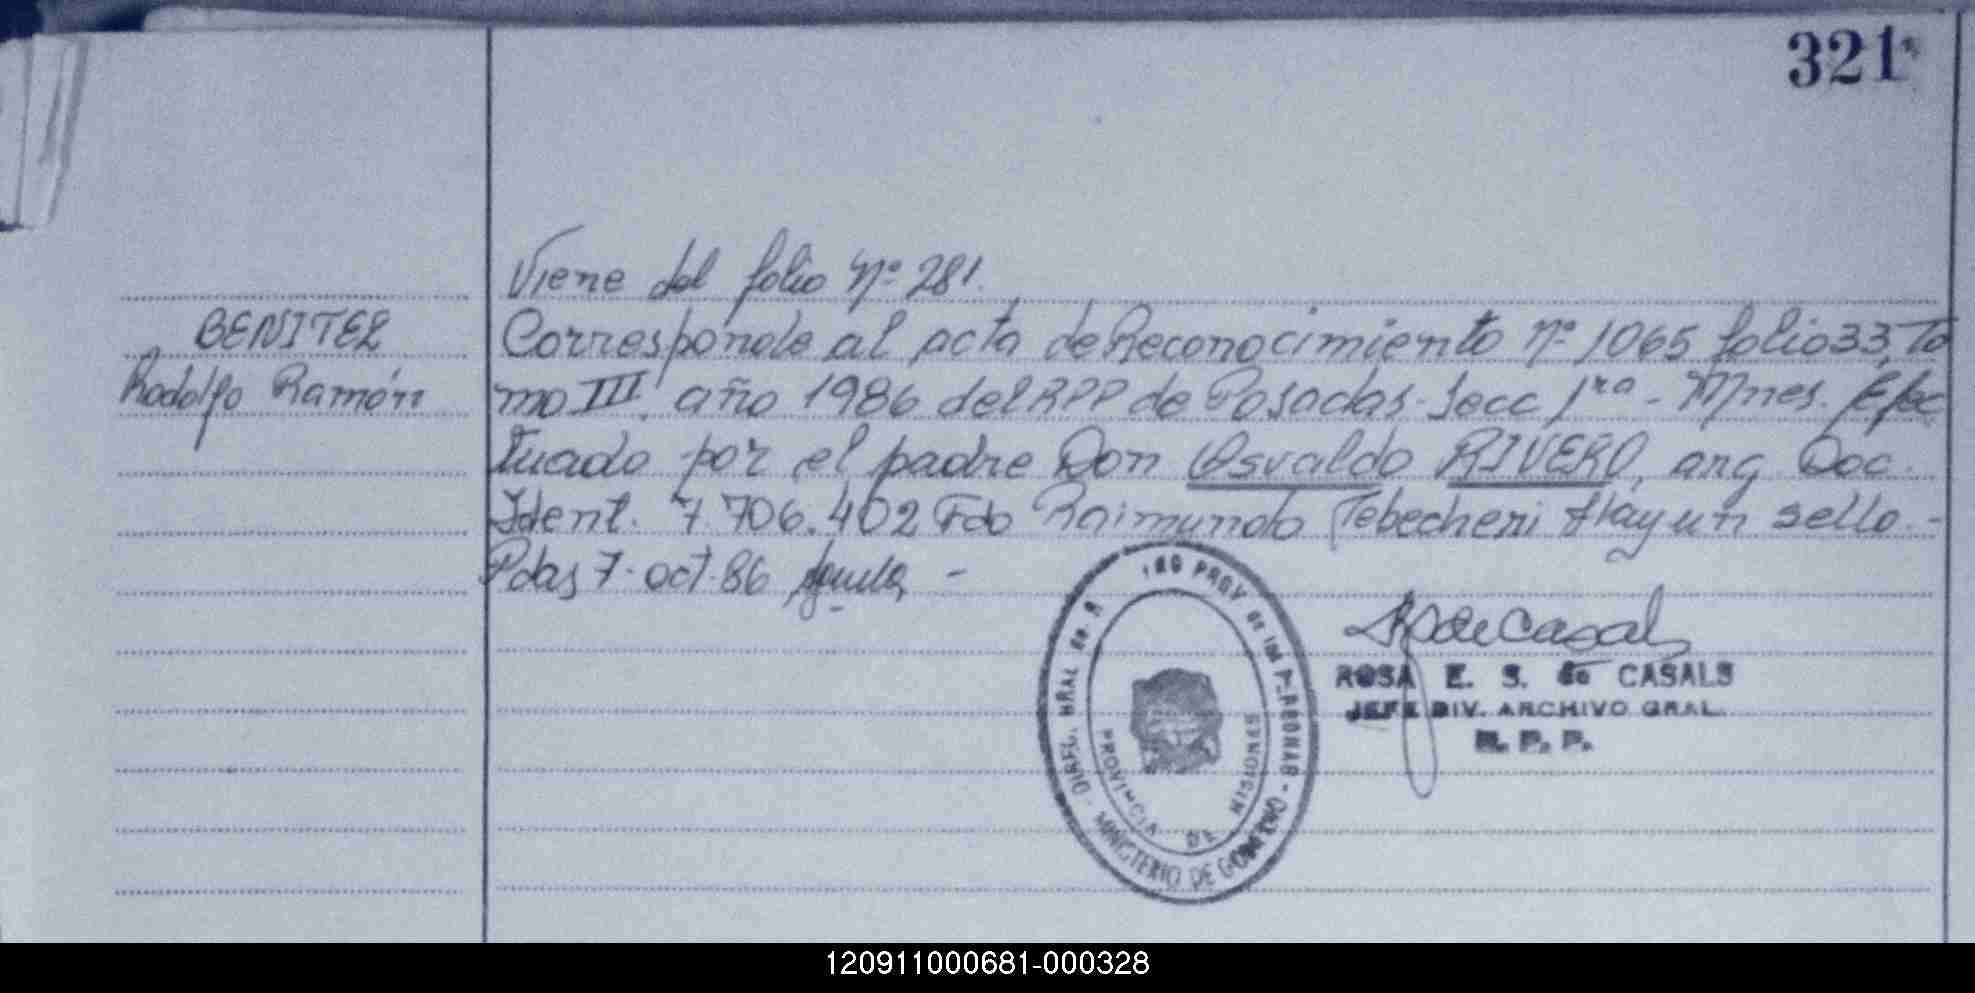 321
Viene del folio Nº 281.
BENITEZ
Rodolfo Ramón
Corresponde al acta de Reconocimiento Nº 1065 folio 33, To
mo III, año 1986 del RPP de Posadas - Secc 1ra - Mnes. Efec
tuado por el padre Don Osvaldo RIVERO, arg Doc.
Ident. 7.706.402 Fdo Raimundo Tebecheri sello.-
Pdas 7-oct-86 -
DIREC. GRAL de R PROV de las PERSONAS - MINISTERIO DE GOBIERNO -
PROVINCIA DE MISIONES
ROSA E. S. de CASALS
JEFE DIV. ARCHIVO GRAL.
R. P. P.
120911000681-000328